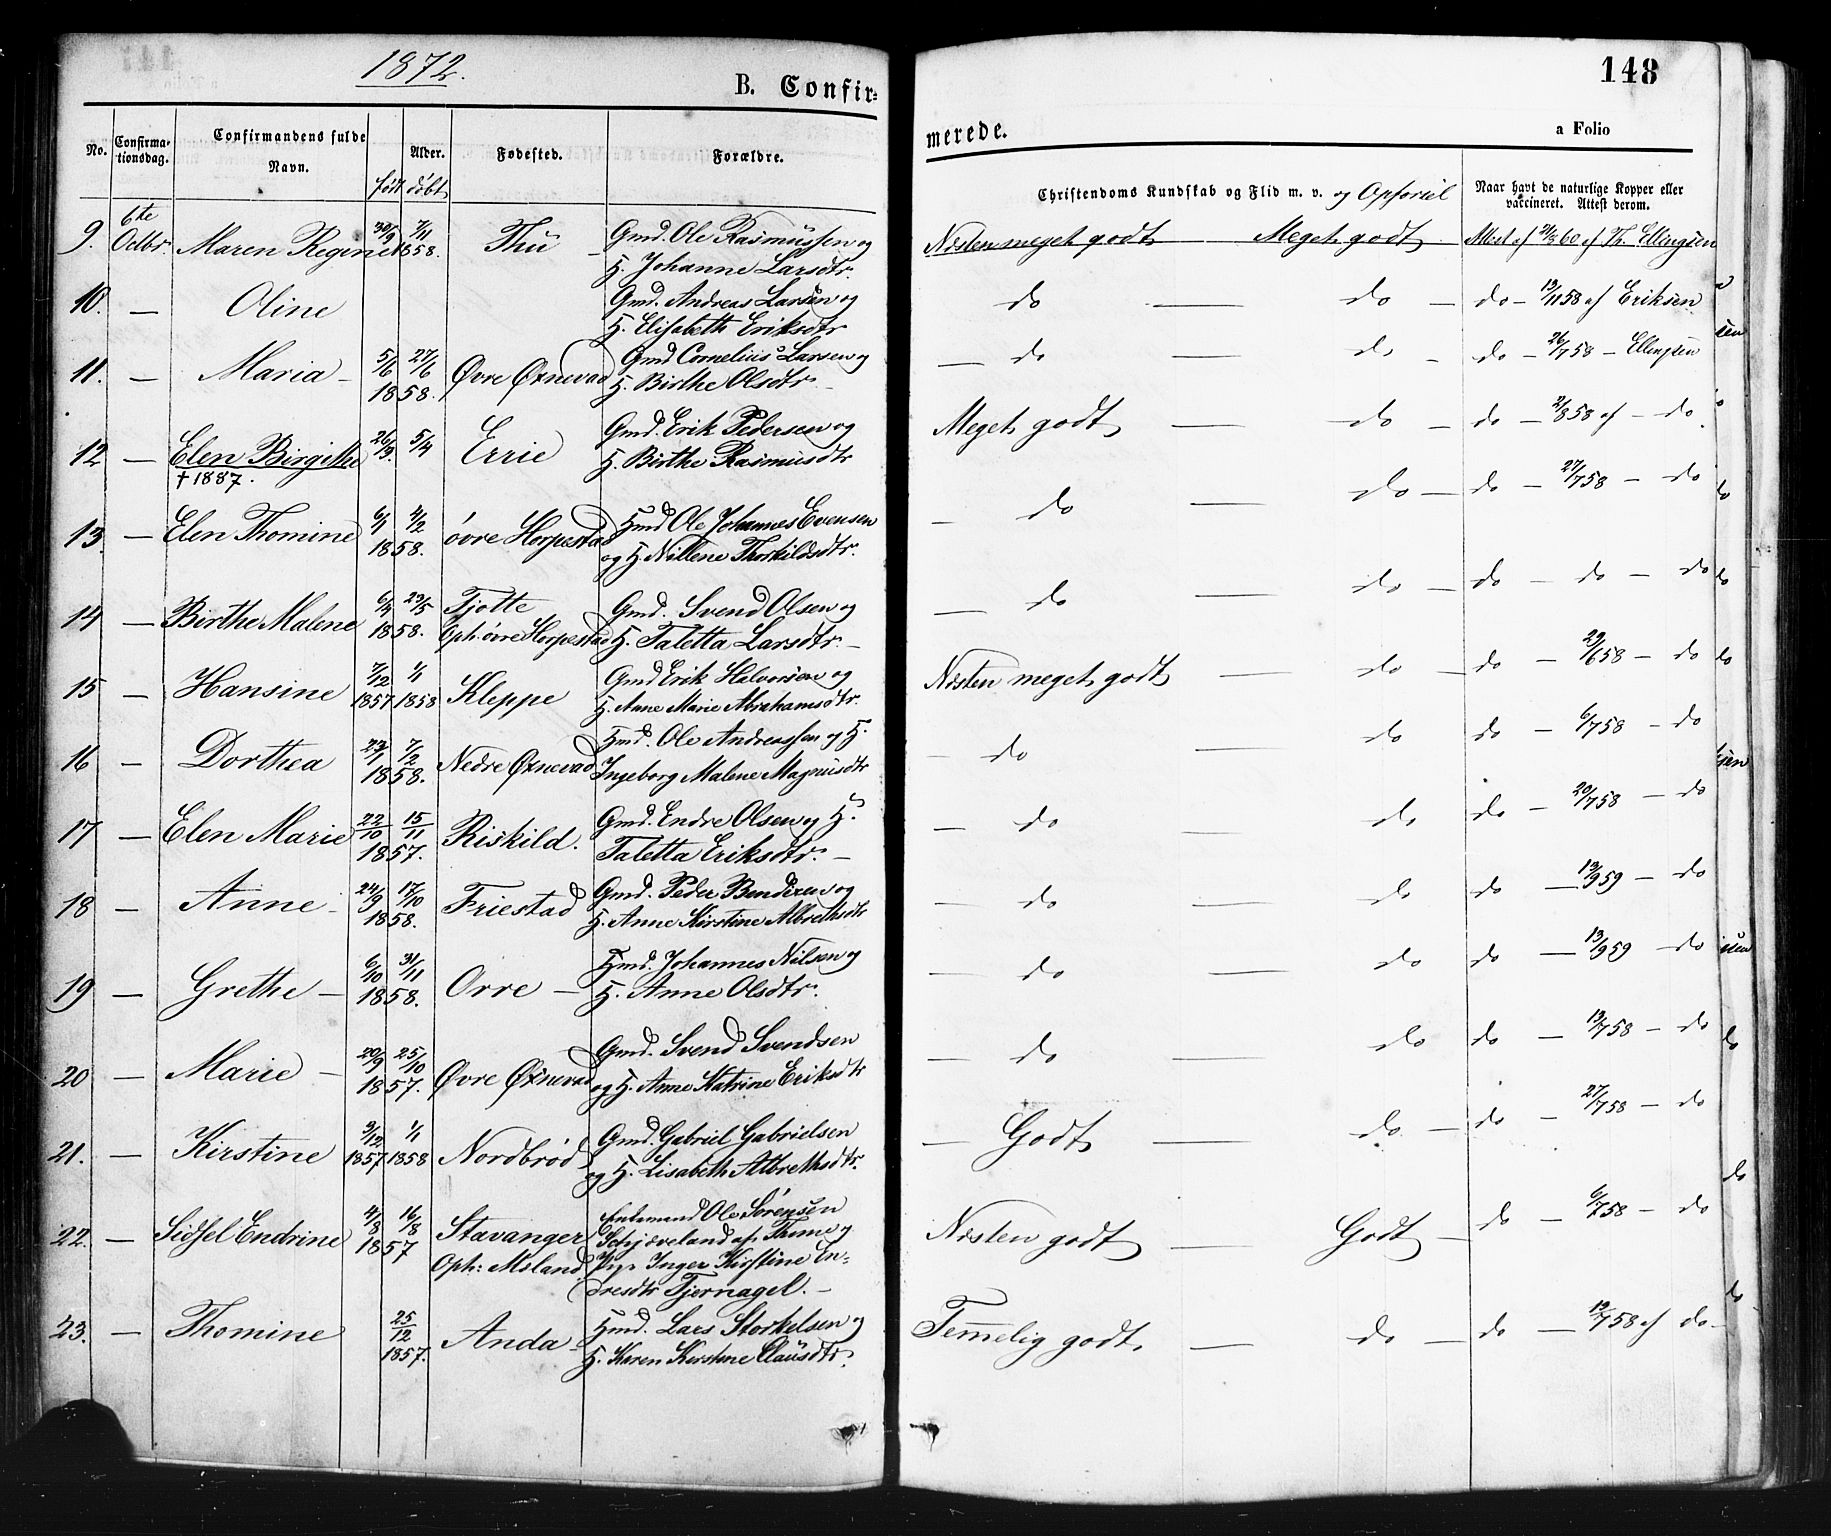 1872.
B. Confir=
No.
Confirma-
tionsdag.
Confirmandens fulde
Navn.
født
Alder.
døbt
Fødested.
Forældre.
9. 6te Octbr. Maren Regine 30/9 7/11 1858. Thu – Gmd. Ole Rasmussen og
H. Johanne Larsdtr.
10. — Oline Gmd. Andreas Larsen og
H. Elisabeth Eriksdtr
11. — Maria – 5/6 27/6 1858. Øvre Øxnevad Gmd Cornelius Larsen og
H. Birthe Olsdtr. –
12 — Elen Birgithe 26/3. 5/4 Erric Gmd. Erik Pedersen og
† 1887. H. Birthe Rasmusdtr
13. — Elen Thomine 6/1 4/2 1858. øvre Horpestad Hmd Ole Johannes Evensen
og H. Nillene Thorkildsdtr.
14 — Birthe Malene 6/4 23/5 1858. Tjotte Gmd. Svend Olsen og
Oph: øvre Horpestad H. Taletta Larsdtr. –
15 — Hansine 7/12 1857 1/1 1858 Kleppe Gmd Erik Halvorsen og
H. Anne Marie Abrahamsdtr.
16 — Dorthea 23/1 7/2 1858. Nedre Øxnevad Hmd. Ole Andreassen og H.
Ingeborg Malene Magnusdtr
17 — Elen Marie 22/10 15/11 1857. Riskild. Gmd. Endre Olsen og H.
Taletta Eriksdtr. –
18 — Anne – 24/9 17/10 1858. Friestad Gmd. Peder Bendixen og
H. Anne Kirstine Albrethsdtr
19 — Grethe – 6/10 31/11 1858. Orre – Hmd. Johannes Nilsen og
H. Anne Olsdtr.
20 — Marie – 20/9 25/10 1857. Øvre Øxnevad Gmd. Svend Svendsen
og H. Anne Katrine Eriksdtr
21. — Kirstine 3/12 1857 1/1 1858 Nordbrød Gmd. Gabriel Gabrielsen
og H. Lisabeth Albrethsdtr.
22. — Sidsel Endrine 4/8 16/8 1857 Stavanger Enkemand Ole Sørensen
Schjæveland af Thime og
Oph: Mæland. Pige Inger Kirstine En-
dresdtr Tjernagel. –
23. — Thomine 25/12 1857. Anda – Hmd. Lars Storkelsen og
H. Karen Kirstine Clausdtr.
148
merede.
a Folio
Christendoms Kundskab og Flid m. v. og Opførsel
Naar havt de naturlige Kopper eller
vaccineret. Attest derom.
Næsten meget godt — Meget godt Attest af 21/3 60 af Th. Ellingsen
do — do – do – 19/11 58 af Eriksen
— do — do – do – 26/7 58 – Ellingsen
Meget godt — do – do – 2/8 58 af – do
— do — do – do – 27/7 58 – do
— do — do – do – do – do
Næsten meget godt — do – do – 29/6 58 – do
— do — do do – 6/7 58 – do
— do — do do – 20/7 58 – do
— do — do do — 19/9 59 – do
— do — do do — 13/9 59 – do
— do — do do – 13/7 58 – do
— Godt — do – do – 27/7 58 – do
Næsten godt — Godt – do – 6/7 58 – do
Temmelig godt. — do – do — 19/7 58 af do –